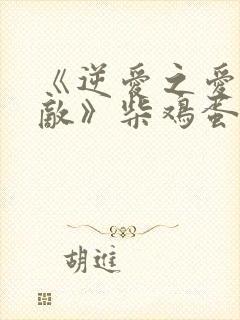 《逆爱之爱
敌》柴鸡蛋
胡進